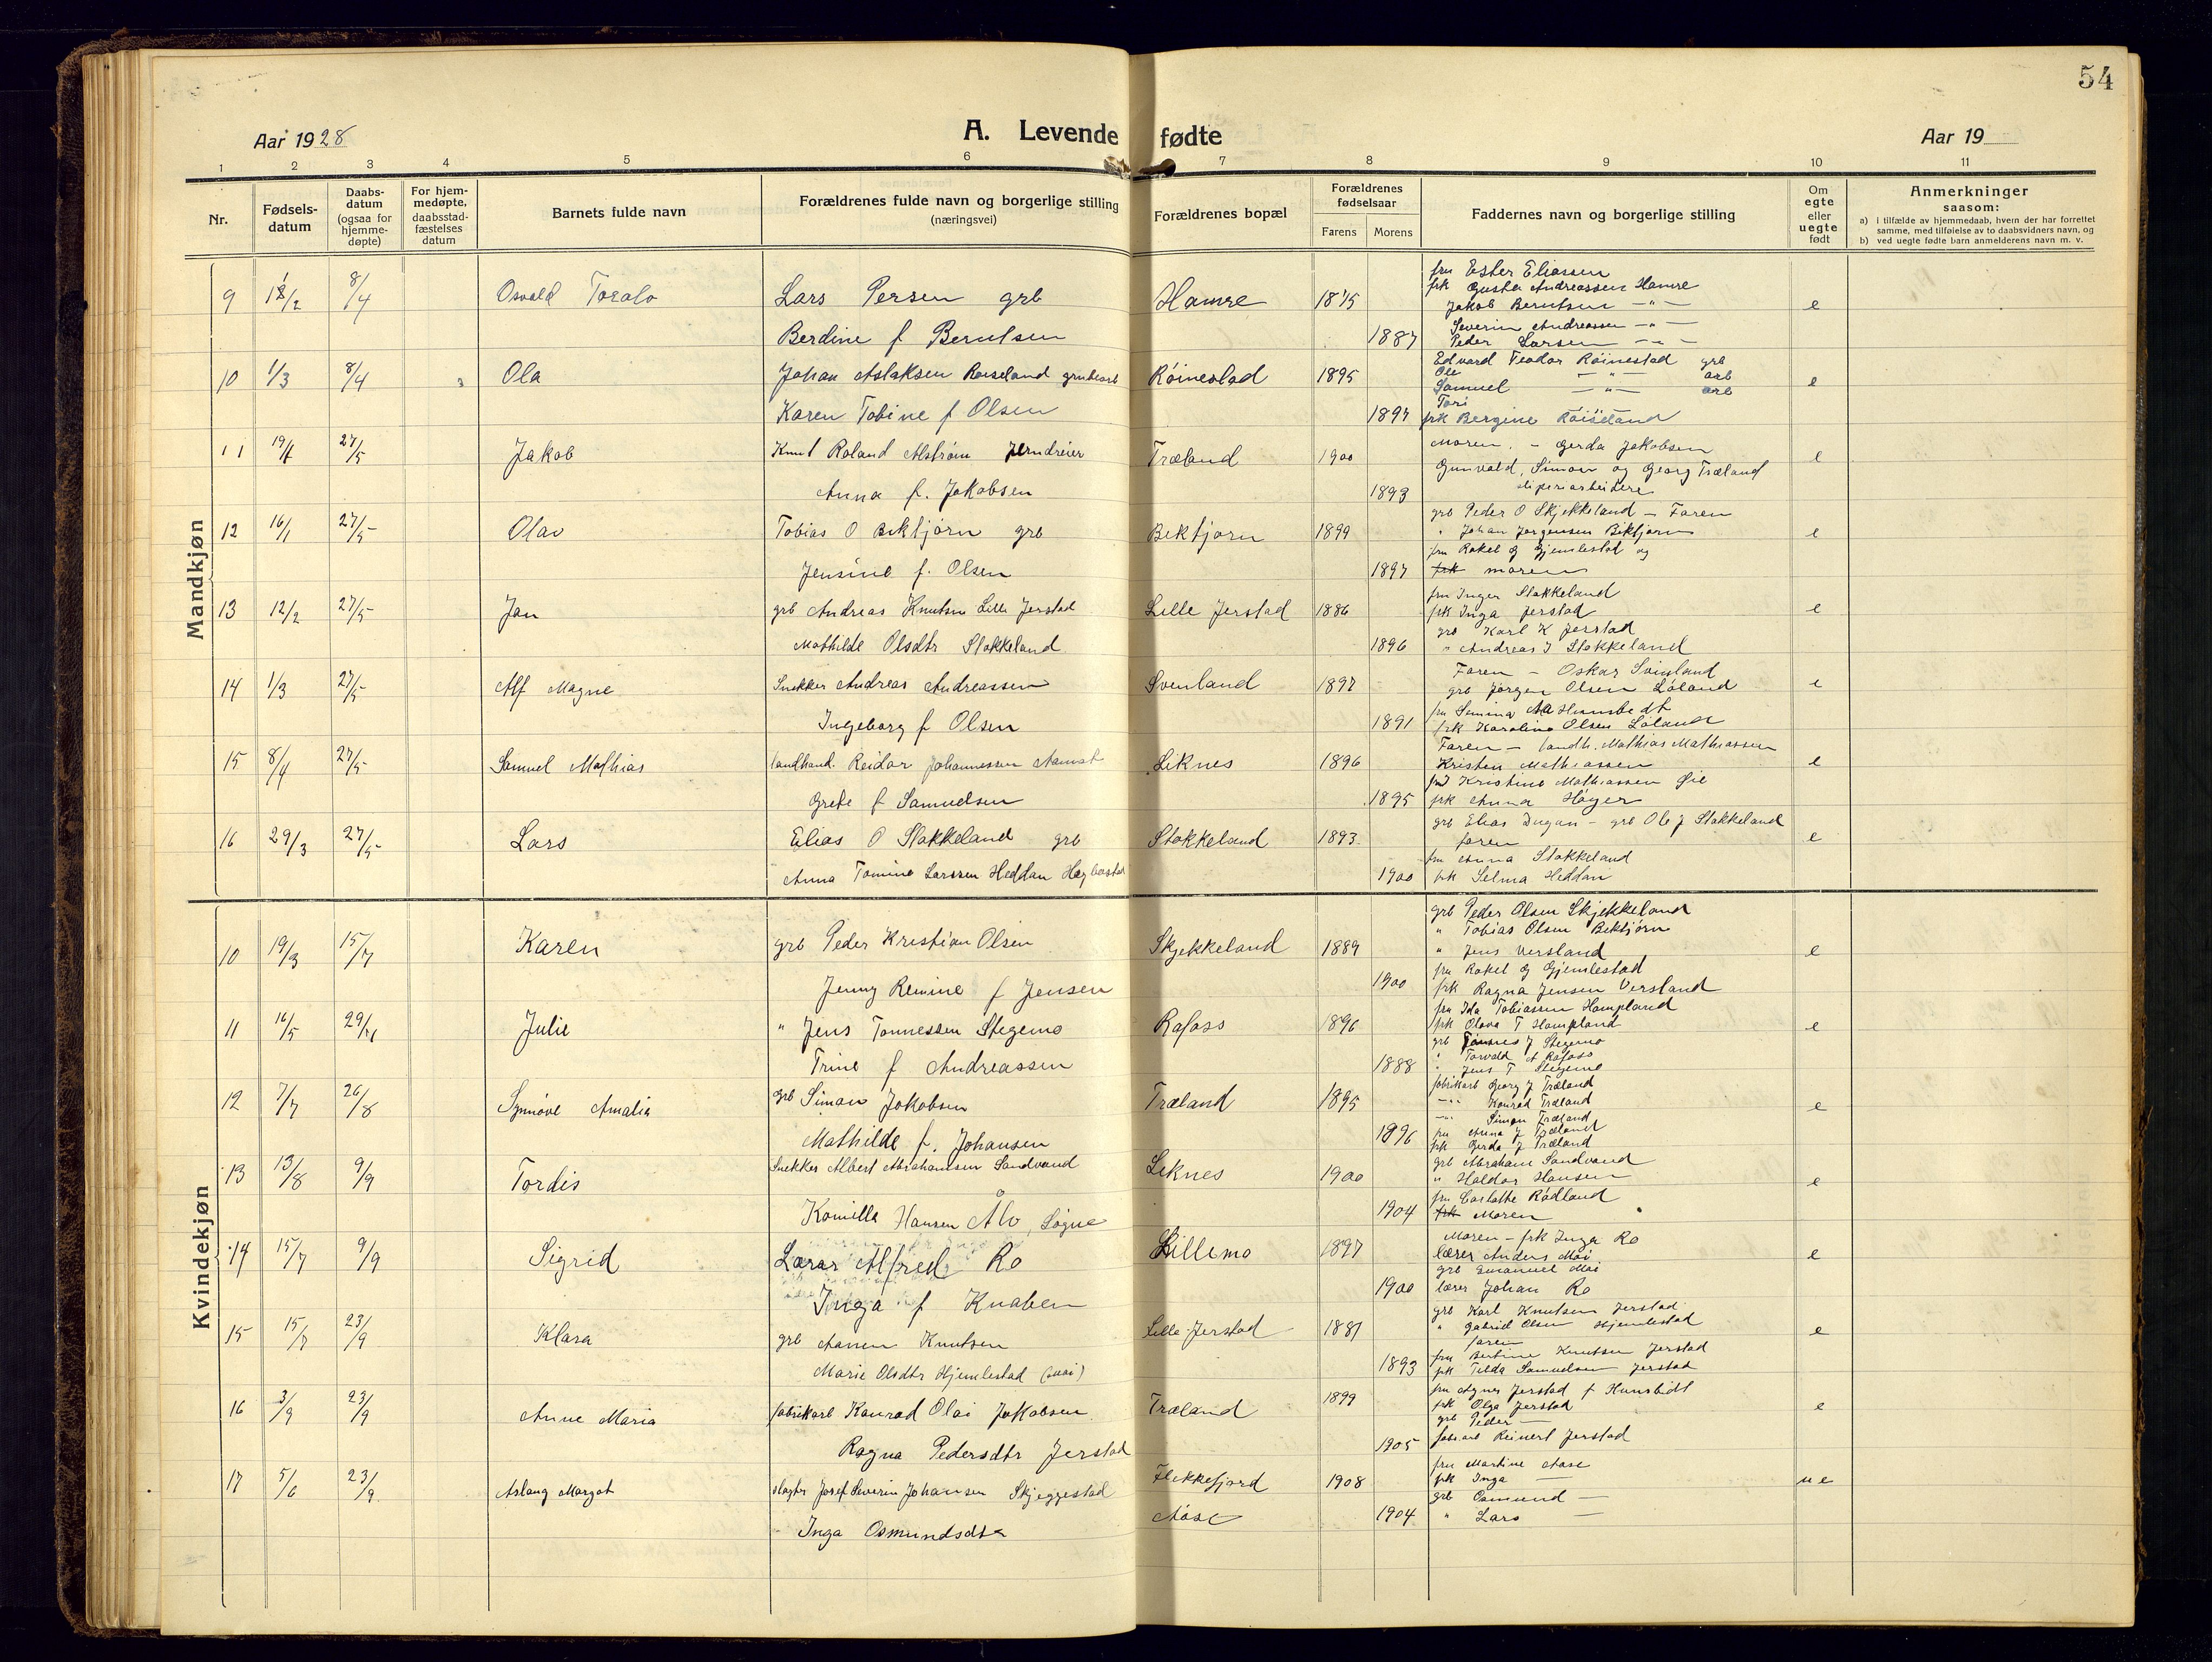 54
Aar 1928
A. Levende fødte
Aar 19
1 2 3 4 5 6 7 8 9 10 11
Nr.
Fødsels-datum
Daabs-datum (ogsaa for hjemme-døpte)
For hjem-medøpte, daabsstad-fæstelses datum
Barnets fulde navn
Forældrenes fulde navn og borgerlige stilling (næringsvei)
Forældrenes bopæl
Forældrenes fødselsaar
Farens Morens
Faddernes navn og borgerlige stilling
Om egte eller uegte født
Anmerkninger saasom:
a) i tilfælde av hjemmedaab, hvem der har forrettet samme, med tilføielse av to daabsvidners navn, og
b) ved uegte fødte barn anmelderens navn m. v.
Mandkjøn
9 18/2 8/4 Osvald Toralv Lars Persen grb Hamre 1875 e
Berdine f Berntsen 1887
fru Ester Eliassen
frk Gusta Andreassen Hamre
Jakob Berntsen — " —
Severin Andreassen — " —
Peder Larsen — " —
10 1/3 8/4 Ola Johan Aslaksen Røiseland grubearb Røinestad 1895 e
Karen Tobine f Olsen 1897
Edvard Teodor Røinestad grb
Ole — " — arb
Samuel — " — arb
Tori
frk Bergine Røiseland
11 27/5 Jakob Knut Roland Alstrøm jerndreier Træland 1900 e
Anna f. Jakobsen 1893
Moren. - Gerda Jakobsen
Gunvald, Simon og Georg Træland
sliperiarbeidere
12 16/1 27/5 Olav Tobias O Bektjørn grb Bektjørn 1899 e
Jensine f. Olsen 1897
grb Peder O Skjekkeland - Faren
" Johan Jørgensen Bektjørn
fru Rakel G Gjemlestad og
frk moren
13 12/2 27/5 Jan grb Andreas Knutsen Lille Jerstad Lille Jerstad 1886 e
Mathilde Olsdtr Stokkeland 1896
fru Inger Stokkeland
frk Inga Jerstad
grb Karl K Jerstad
" Andreas J Stokkeland
14 1/3 27/5 Alf Magne Snekker Andreas Andreassen Svenland 1897 e
Ingeborg f Olsen 1891
Faren - Oskar Svinland
grb Jørgen Olsen Løland
fru Semina Hunsbedt
frk Karoline Olsen Løland
15 8/4 27/5 Samuel Mathias landhand. Reidar Johannessen Aamot Liknes 1896 e
Grete f Samuelsen 1895
Faren - landh. Mathias Mathiassen
Kristen Mathiassen
fru Kristine Mathiassen Øie
frk Anna Høyer
16 29/3 27/5 Lars Elias O Stokkeland grb Stokkeland 1893 e
Anna Tomine Larssen Heddan Hægbostad 1900
grb Elias Dugan - grb Ole J Stokkeland
faren
fru Anna Stokkeland
frk Selma Heddan
Kvindekjøn
10 19/3 15/7 Karen grb Peder Kristian Olsen Skjekkeland 1889 e
Jenny Remine f Jensen 1900
grb Peder Olsen Skjekkeland
" Tobias Olsen Bektjørn
" Jens Versland
fru Rakel G Gjemlestad
frk Ragna Jensen Versland
11 16/5 Julie " Jens Tønnessen Stegemo Rafoss 1896 e
Trine f Andreassen 1888
fru Ida Tobiassen Hompland
frk Olava T Hompland
grb Tønnes J Stegemo
" Torvald A Rafoss
" Jens T Stegemo
12 7/7 26/8 Synnøve Amalia grb Simon Jakobsen Træland 1895 e
Mathilde f. Johansen 1896
fabrikarb Georg J Træland
— " Konrad Træland
— " Simon Træland
fru Anna J Træland
frk Gerda J Træland
13 13/8 9/9 Tordis Snekker Albert Abrahamsen Sandvand Liknes 1900 e
Komilla Hansen Søgne 1904
grb Abraham Sandvand
" Haldor Hansen
fru Rødland
frk Moren
14 15/7 9/9 Sigrid Lærer Alfred Ro Lillemo 1897 e
Inga f Knaben 1900
Moren - frk Inga Ro
lærer Anders Moi
grb Emanuel Moi
lærer Johan Ro
15 15/7 23/9 Klara grb Aanen Knutsen Lille Jerstad 1881 e
Marie Olsdtr Hjemlestad 1893
grb Karl Knutsen Jerstad
" Gabriel Olsen Hjemlestad
faren
fru Bertine Knutsen Jerstad
frk Tilda Samuelsen Jerstad
16 3/9 23/9 Anne Maria fabrikarb Konrad Olai Jakobsen Træland 1899 e
Ragna Pedersdtr Jerstad 1905
fru Agnes Jerstad f Hunsbidt
frk Olga Jerstad
grb Peder —
fabr.arb Reinert Jerstad
17 5/6 23/9 Aslaug Margot slagter Josef Severin Johansen Skjeggestad Flekkefjord 1908 u e
Inga Osmundsdtr Aase 1904
fru Martine Aase
frk Inga —
grb Osmund —
" Lars —